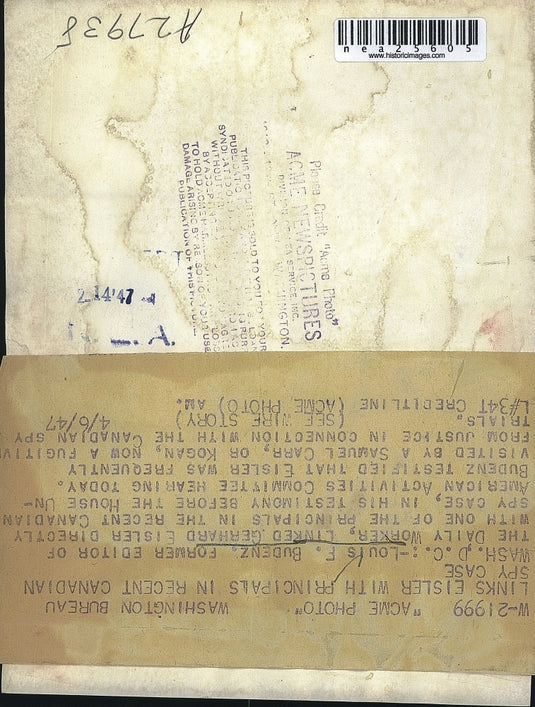 A27938
nea25605
www.historicimages.com
Please Credit "Acme Photo"
ACME NEWSPICTURES
WASHINGTON.
THIS PICTURE IS SOLD TO YOU FOR YOUR
WITHOUT
TO HOLD ACME
DAMAGE ARISING BY REASON OF YOUR USE
PUBLICATION OF THIS PICTURE
2-14'47
W-21999 "ACME PHOTO" WASHINGTON BUREAU
LINKS EISLER WITH PRINCIPALS IN RECENT CANADIAN
SPY CASE
WASH, D.C.:-LOUIS F. BUDENZ, FORMER EDITOR OF
THE DAILY WORKER, LINKED GERHARD EISLER DIRECTLY
WITH ONE OF THE PRINCIPALS IN THE RECENT CANADIAN
SPY CASE, IN HIS TESTIMONY BEFORE THE HOUSE UN-
AMERICAN ACTIVITIES COMMITTEE HEARING TODAY.
BUDENZ TESTIFIED THAT EISLER WAS FREQUENTLY
VISITED BY A SAMUEL CARR, OR KOGAN, NOW A FUGITIVE
FROM JUSTICE IN CONNECTION WITH THE CANADIAN SPY
TRIALS. (SEE WIRE STORY) 4/6/47
L#34T CREDITLINE (ACME PHOTO) AM.